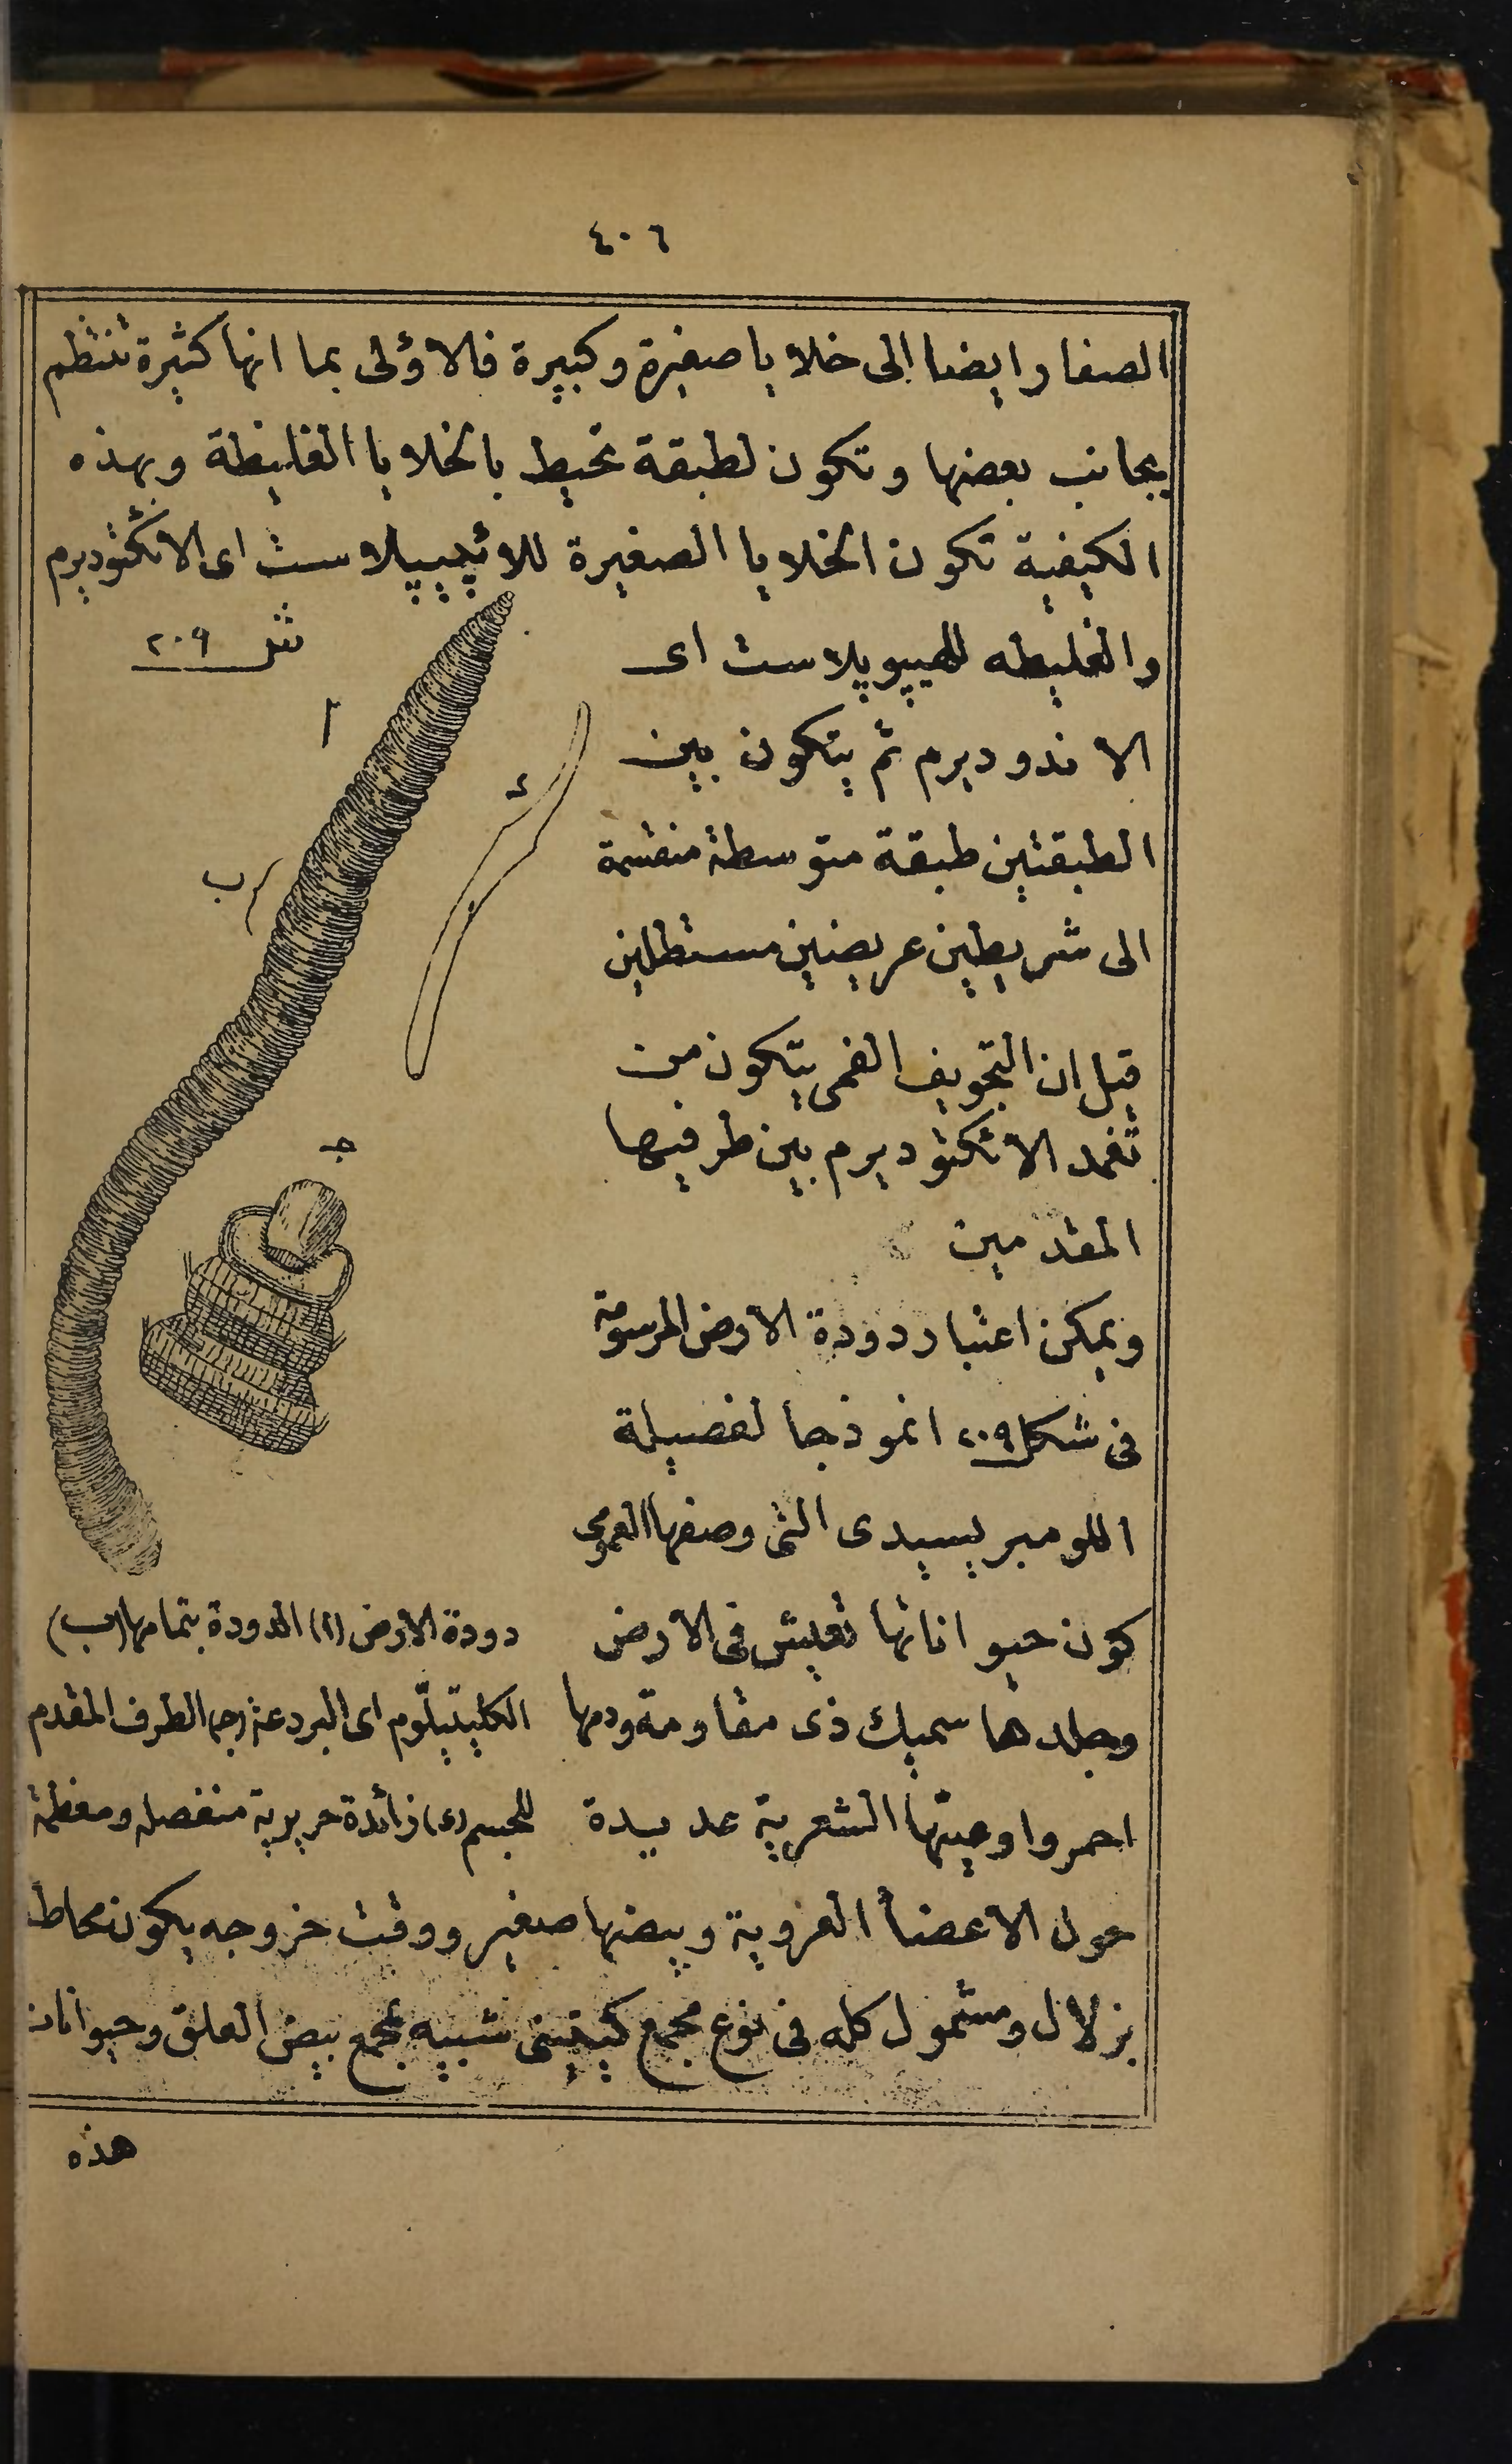 ٤٠٦
الصفار ايضا الى خلايا صغيرة وكبيرة فالاؤلى بما انها كثيرة تنتظم
بجانب بعضها وتكون لطبقة تحيط بالخلايا الغليظة وبهذه
الكيفية تكون الخلايا الصغيرة للائپيپلاست اى الائكتوديرم
والغليظه للهيپوپلاست اى
الاندوديرم ثم يتكون بين
الطبقتين طبقة متوسطة منقسمة
الى شريطين عريضين مستطلين
قيل ان التجويف الفمى يتكون من
تغمد الائكتوديرم بين طرفيها
المقدمين
ويمكن اعتبار دودة الارض المرسومة
فى شكل ٢٠٩ انموذجا لفصيلة
اللومبريسيدى التى وصفها العمومى
كون حيواناتها تعيش فى الارض
وجلدها سميك ذى مقاومة ودمها
احمر واوعيتها الشعرية عديدة
حول الاعضأ العزوية وبيضها صغير ووقت خروجه يكون محاط
بزلال ومشمول كله فى نوع مجمع كيتينى شبيه بمجمع بيض العلق وحيوانات
شكل ٢٠٩
ا
ب
د
جـ
دودة الارض (ا) الدودة بتمامها (ب)
الكليتيلّوم اى البردعة (جـ) الطرف المقدم
للجسم (د) زائدة حريرية منفصله ومغطمة
هذه